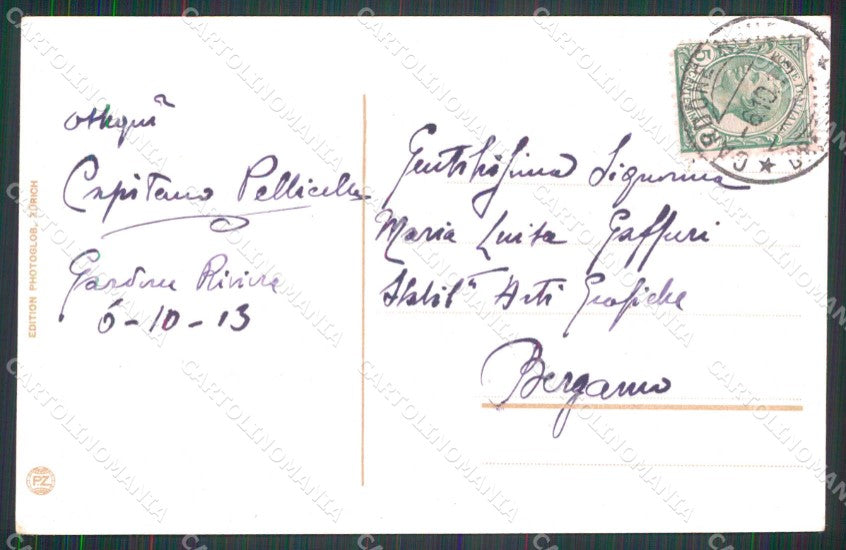 Ossequi
Capitano Pellicella
Gardone Riviera
6-10-13
Gentilissima Signorina
Maria Luisa Gaffuri
Stabil.ti Arti Grafiche
Bergamo
EDITION PHOTOGLOB. ZÜRICH
P.Z.
GARDONE
POSTE ITALIANE
CARTOLINOMANIA